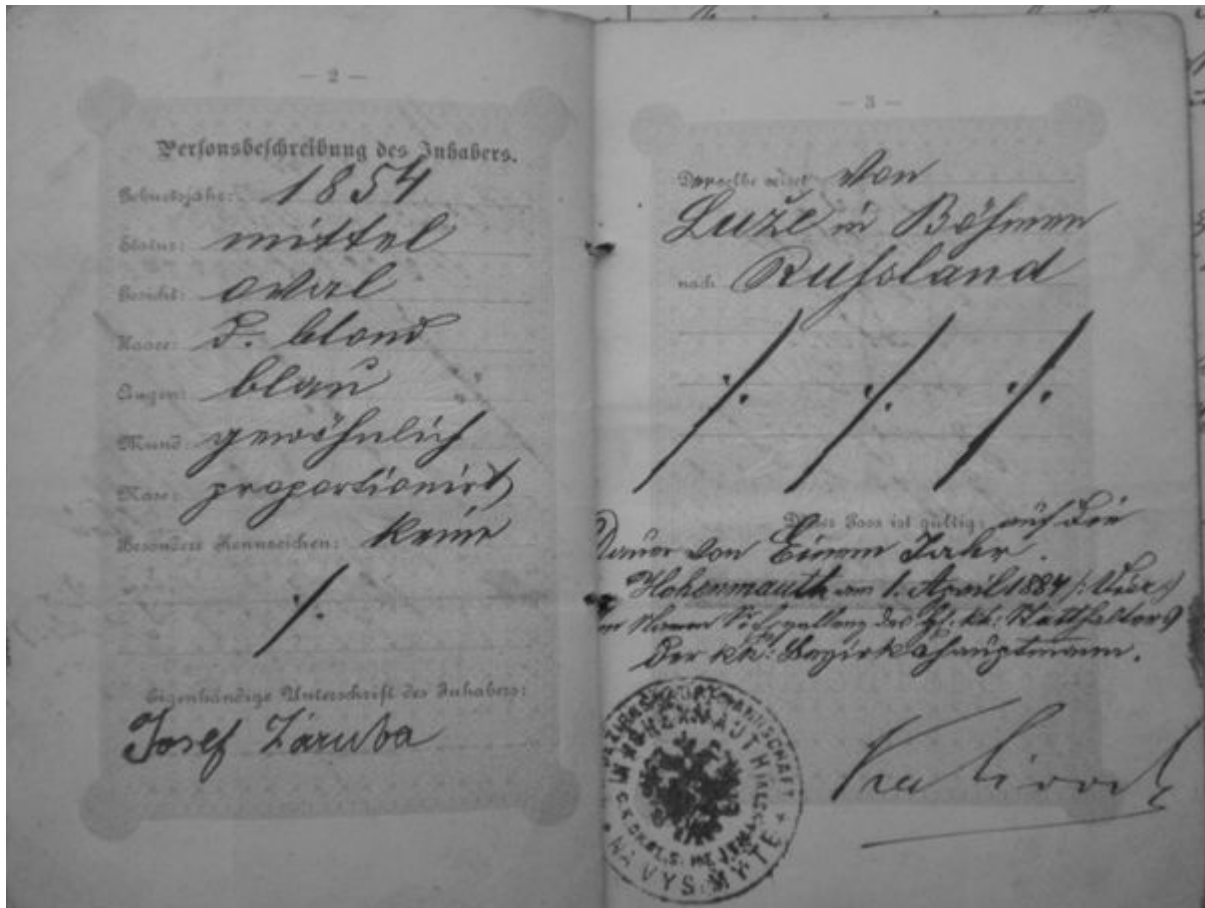 — 2 —
Personsbeschreibung des Inhabers.
Geburtsjahr: 1854
Statur: mittel
Gesicht: oval
Haare: d. blond
Augen: blau
Mund: gewöhnlich
Nase: proportionirt
Besondere Kennzeichen: keine
./.
Eigenhändige Unterschrift des Inhabers:
Josef Záruba
— 3 —
Derselbe reiset von
Luže in Böhmen
nach Russland
./. ./. ./.
Dieser Pass ist gültig: auf die
Dauer von Einem Jahr.
Hohenmauth am 1. April 1884
Im Namen Sr. Excellenz des H. kk: Statthalters
Der kk: Bezirkshauptmann.
BEZIRKSHAUPTMANNSCHAFT
IN HOHENMAUTH
C.K. OKRES. HEJTMANSTVÍ
NA VYS. MÝTĚ